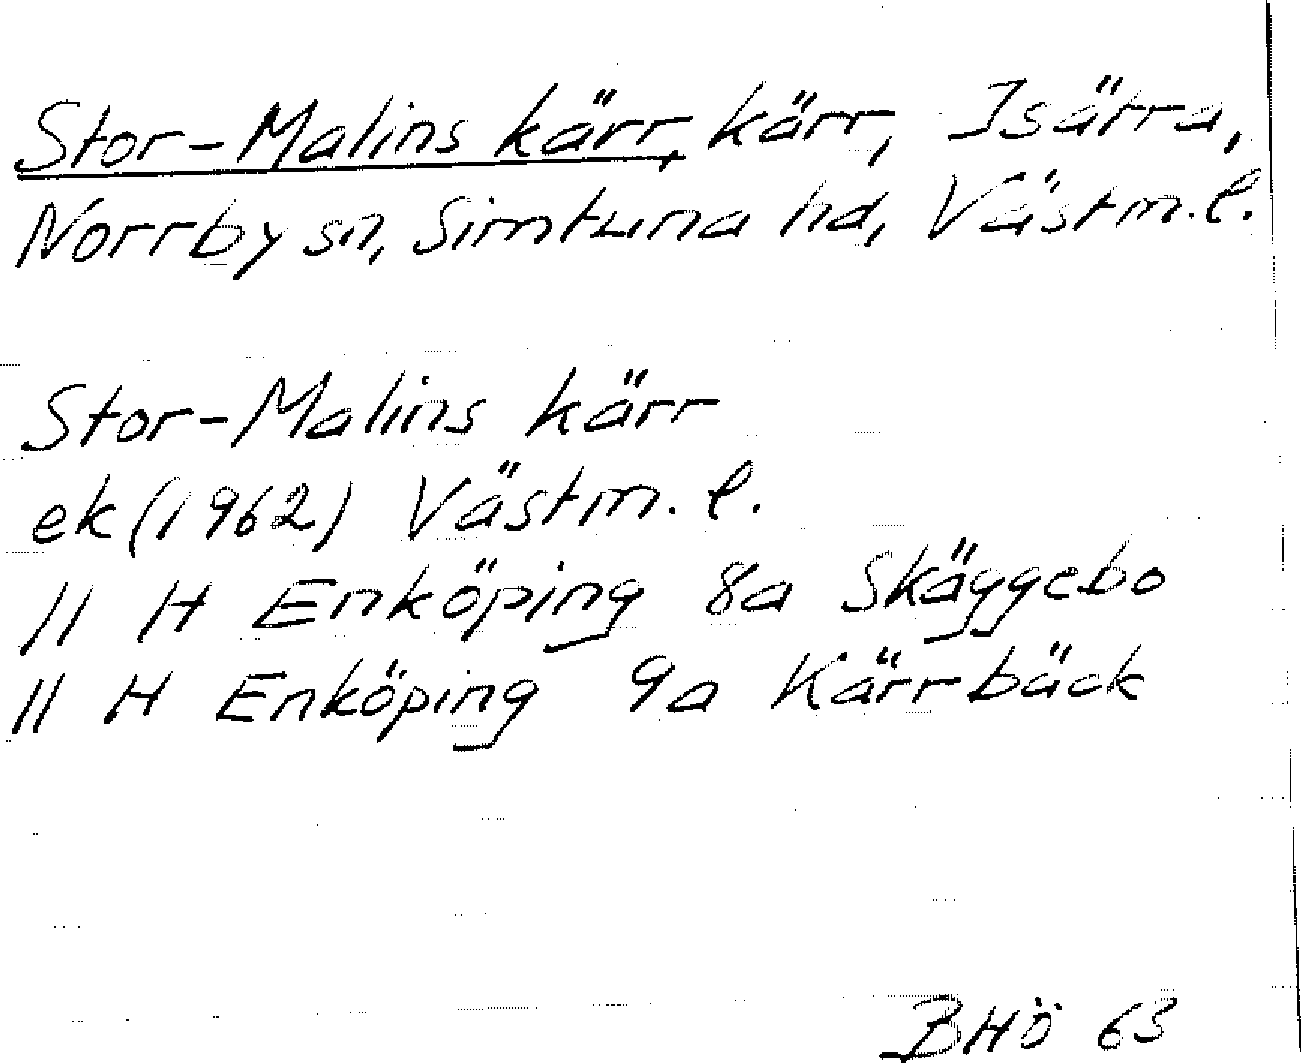 Stor-Malins kärr, kärr, Isätra,
Norrby sn, Simtuna hd, Västm. l.
Stor-Malins kärr
ek (1962) Västm. l.
11 H Enköping 8a Skäggebo
11 H Enköping 9a Kärrbäck
BHÖ 63